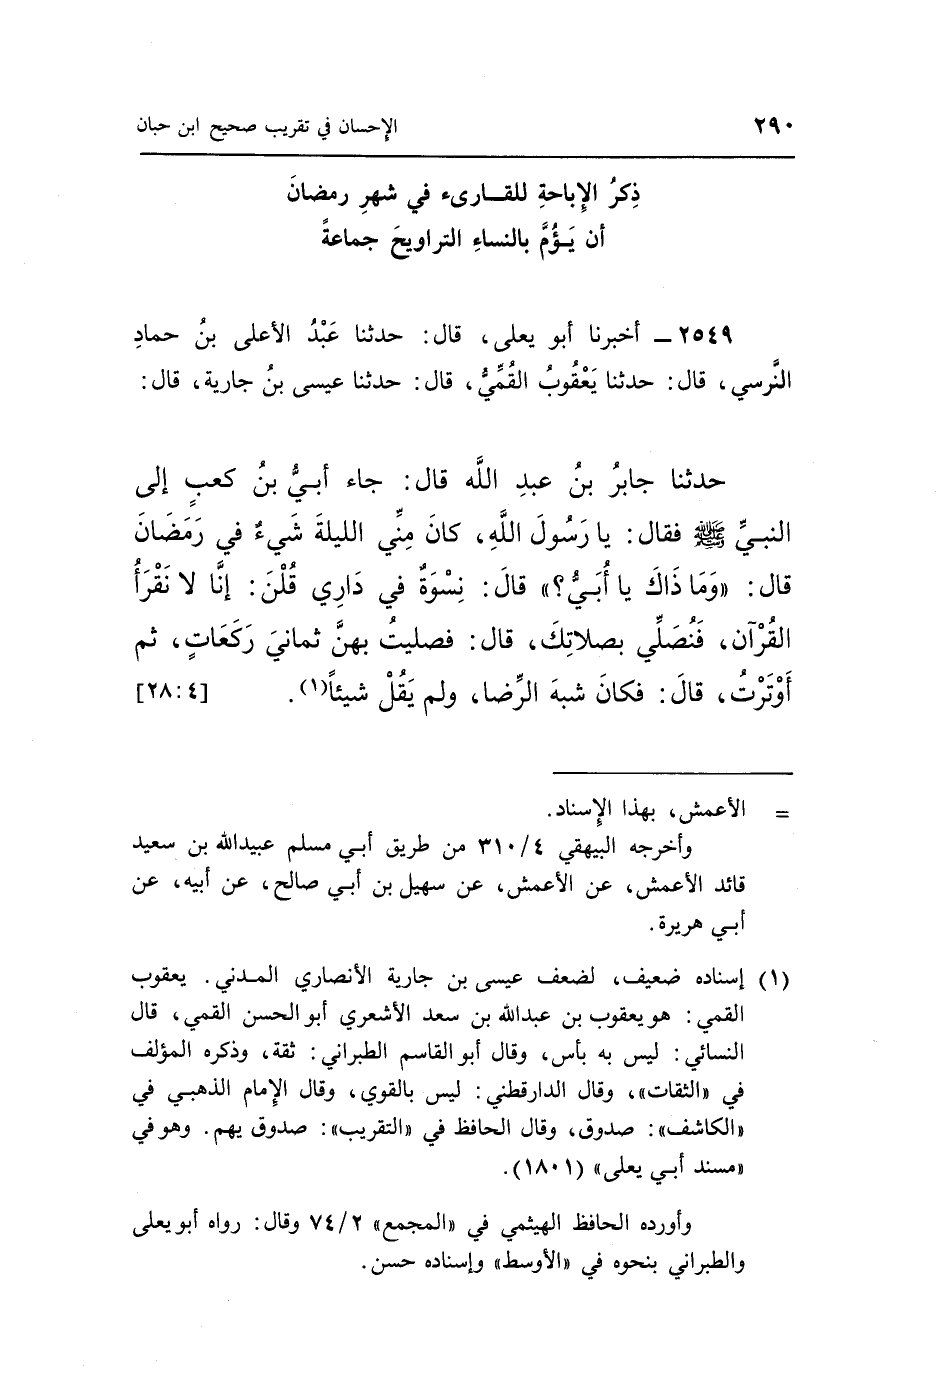 ٢٩٠ الإحسان في تقريب صحيح ابن حبان
ذِكرُ الإباحةِ للقـارىء في شهرِ رمضانَ
أن يَـؤُمَّ بالنساءِ التراويحَ جماعةً
٢٥٤٩ ـ أخبرنا أبو يعلى، قال: حدثنا عَبْدُ الأعلى بنُ حمادِ
النَّرسي، قال: حدثنا يَعْقُوبُ القُمِّيُّ، قال: حدثنا عيسى بنُ جارية، قال:
حدثنا جابرُ بنُ عبدِ اللَّه قال: جاء أبيُّ بنُ كعبٍ إلى
النبيِّ ﷺ فقال: يا رَسُولَ اللَّهِ، كانَ مِنِّي الليلةَ شَيءٌ في رَمَضَانَ
قال: «وَمَا ذَاكَ يا أُبَيُّ؟» قالَ: نِسْوَةٌ في دَارِي قُلْنَ: إنَّا لا نَقْرَأُ
القُرْآن، فَنُصَلِّي بصلاتِكَ، قال: فصليتُ بهنَّ ثمانيَ رَكَعَاتٍ، ثم
أَوْتَرْتُ، قالَ: فكانَ شبهَ الرِّضا، ولم يَقُلْ شيئاً(١). [٢٨:٤]
= الأعمش، بهذا الإسناد.
وأخرجه البيهقي ٣١٠/٤ من طريق أبي مسلم عبيدالله بن سعيد
قائد الأعمش، عن الأعمش، عن سهيل بن أبي صالح، عن أبيه، عن
أبي هريرة.
(١) إسناده ضعيف، لضعف عيسى بن جارية الأنصاري المدني. يعقوب
القمي: هو يعقوب بن عبدالله بن سعد الأشعري أبو الحسن القمي، قال
النسائي: ليس به بأس، وقال أبو القاسم الطبراني: ثقة، وذكره المؤلف
في «الثقات»، وقال الدارقطني: ليس بالقوي، وقال الإمام الذهبي في
«الكاشف»: صدوق، وقال الحافظ في «التقريب»: صدوق يهم. وهو في
«مسند أبي يعلى» (١٨٠١).
وأورده الحافظ الهيثمي في «المجمع» ٧٤/٢ وقال: رواه أبو يعلى
والطبراني بنحوه في «الأوسط» وإسناده حسن.